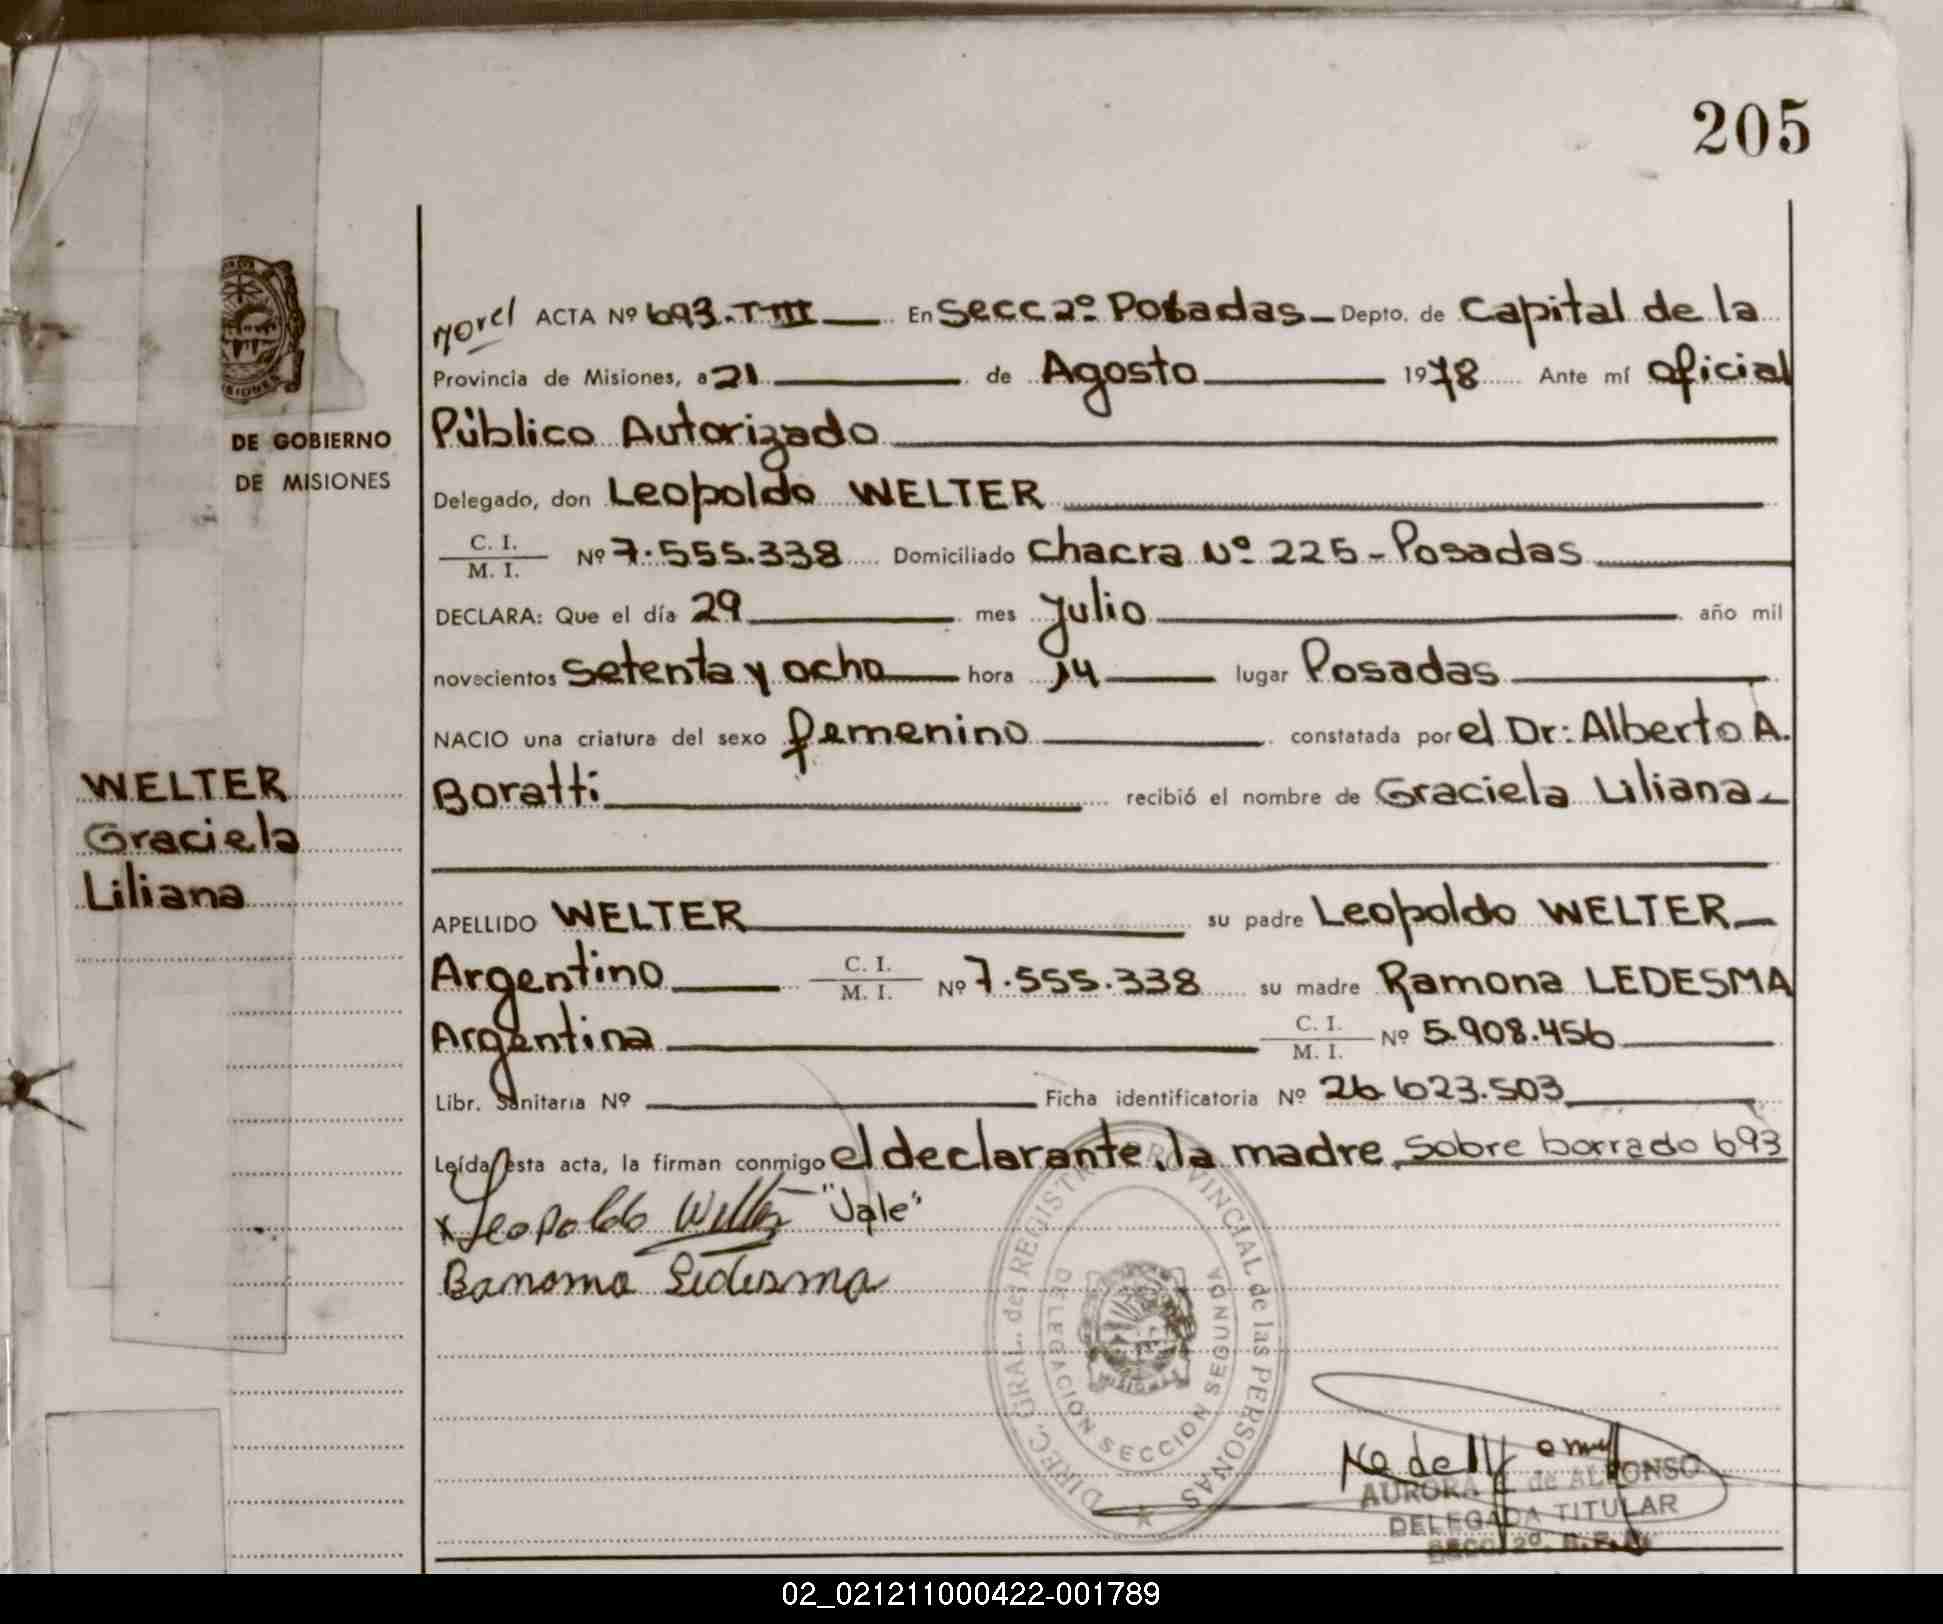 205
DE GOBIERNO
DE MISIONES
WELTER
Graciela
Liliana
ACTA Nº 693.T III En Secc 2º Posadas Depto. de Capital de la
Provincia de Misiones, a 21 de Agosto 1978 Ante mí oficial
Público Autorizado
Delegado, don Leopoldo WELTER
C. I. / M. I. Nº 7.555.338 Domiciliado Chacra Nº 225 - Posadas
DECLARA: Que el día 29 mes Julio año mil
novecientos setenta y ocho hora 14 lugar Posadas
NACIO una criatura del sexo femenino constatada por el Dr: Alberto A.
Boratti recibió el nombre de Graciela Liliana
APELLIDO WELTER su padre Leopoldo WELTER
Argentino C. I. / M. I. Nº 7.555.338 su madre Ramona LEDESMA
Argentina C. I. / M. I. Nº 5.908.456
Libr. Sanitaria Nº Ficha identificatoria Nº 26.623.503
Leída esta acta, la firman conmigo el declarante, la madre, sobre borrado 693
Leopoldo Welter "Vale"
Ramona Ledesma
DIREC. GRAL. del REGISTRO PROVINCIAL de las PERSONAS
DELEGACION SECCION SEGUNDA
MISIONES
AURORA de ALFONSO
DELEGADA TITULAR
SECC. 2º
02_021211000422-001789